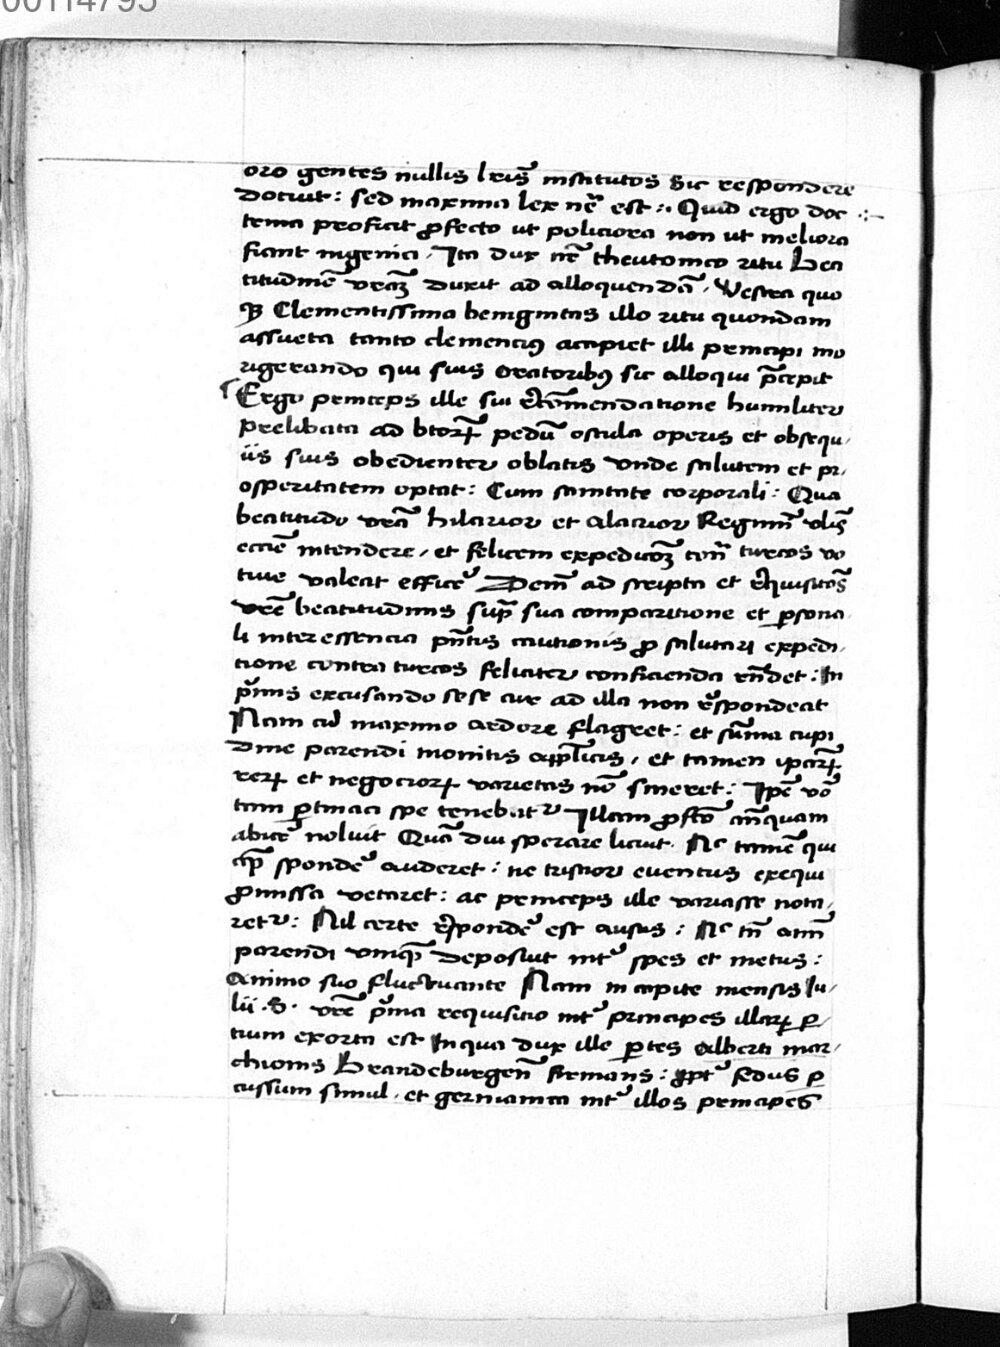 00114795
oro gentes nullis lr̃is institutos Sic respondere
docuit : sed maxima lex nr̃e est :. Quid ergo doc
tema proficit ꝓfecto ut policiora non ut meliora
fiant ingenia . Ita dux nr̃ theutonico ritu Bea
titudinē vr̃aꝫ duxit ad alloquendā . Vestra quo
qꝫ Clementissima benignitas illo ritu quondam
assueta tanto clemencius accipiet illi principi mo
rigerando qui suis oratoribꝰ sic alloqui p̄cepit
Ergo princeps ille sui recōmendatione humiliter
prelibata ad btorꝝ pedū oscula operis et obsequ
iis suis obedienter oblatis vnde salutem et pr
osperitatem optat : Cum sanitate corporali : Qua
beatitudo vr̃a hilarior et alacrior Regimī vlis
ecciē intendere / et felicem expedicōꝫ contra turcos vo
tiue valeat efficere Demū ad scripta et requisitos
vr̃e beatitudinis sup̄ sua comparitione et ꝑsona
li interessencia pn̄tis cautionis ꝓ salutari expedi
tione contra turcos feliciter conficienda rn̄det : In
primis excusando sese cur ad illa non respondeat
Nam cū maximo ardore flagret : et sūma cupi
dine parendi monitis ap̄licis / et tamen ipsarꝝ
rerꝝ et negociorꝝ varietas nō sineret : Ipse vō
tam ꝑtinaci spe tenebatur Illam ꝓfcō nūquam
abicere noluit Quā diu sperare licuit . Ac tamē qui
cqꝫ spondere auderet : ne tristior euentus exequi
ꝓmissa vetaret : ac princeps ille variasse nota
retur : Nil certe respondere est ausus : Ac tn̄ animū
parendi vniqꝫ deposuit inter spes et metus :
Animo suo fluctuante Nam in capite mensis Iu
lii . S . vr̃e prima requisitio inter principes illarꝝ ꝑ
tium exorta est In qua dux ille ꝑtes Alberti mar
chionis Brandeburgen̄ firmans : fedus ꝑ
cussum simul . et germanica inter illos principes